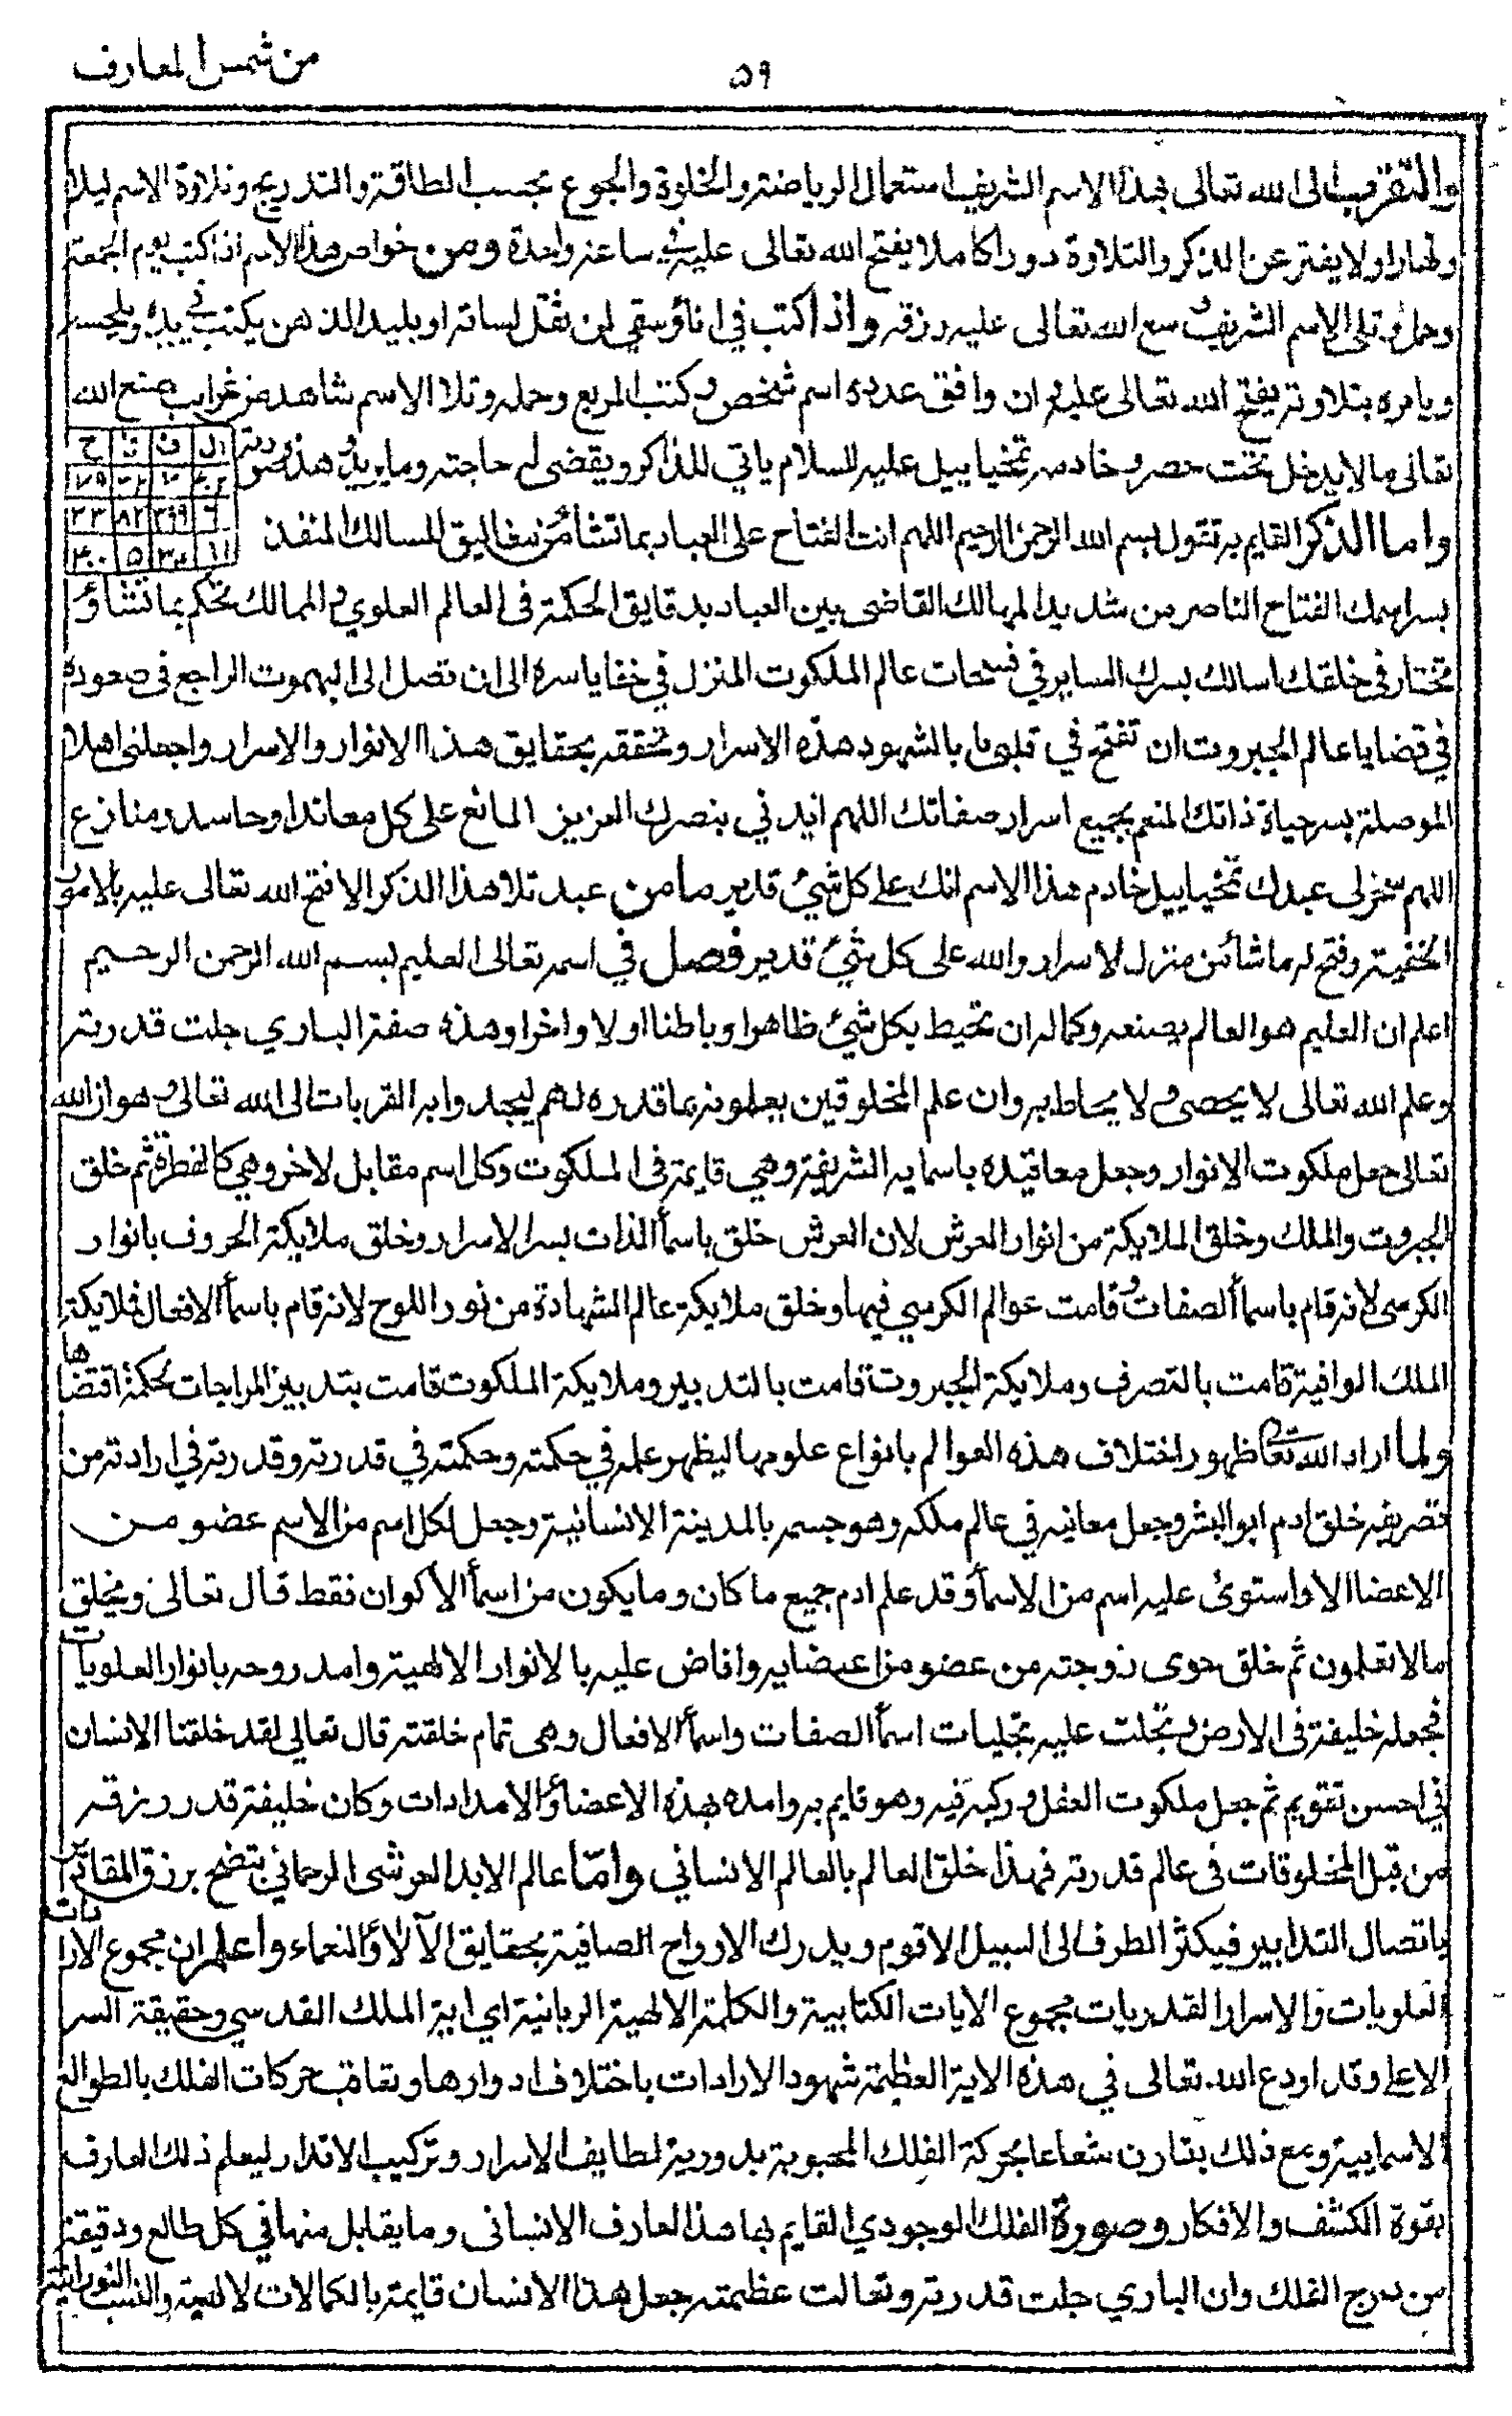 من شمس المعارف
٥٩
والتقرب الى الله تعالى بهذا الاسم الشريف استعمال الرياضة والخلوة والجوع بحسب الطاقة والتدريج وتلاوة الاسم ليلا
ونهارا ولا يفتر عن الذكر والتلاوة دورا كاملا يفتح الله تعالى عليه في ساعة واحدة ومن خواص هذا الاسم اذا كتب يوم الجمعة
وحمل وتلى الاسم الشريف وسع الله تعالى عليه رزقه واذا كتب في اناء وسقي لمن ثقل لسانه او بليد الذهن يكتب في يده ويلحسه
ويامره بتلاوته يفتح الله تعالى عليه وان وافق عدده اسم شخص وكتب المربع وحمله وتلا الاسم شاهد من غرايب صنع الله
تعالى مالا يدخل تحت حصر وخادمه تمخياييل عليه السلام ياتي للذاكر ويقضى له حاجته وما يريد وهذه صورته
ال ف تا ح
واما الذكر القايم به تقول بسم الله الرحمن الرحيم اللهم انت الفتاح على العباد بما تشاء من مغاليق المسالك المنقذ
بسر اسمك الفتاح الناصر من شديد المهالك القاضى بين العباد بدقايق الحكمة فى العالم العلوي والممالك تحكم بما تشاء و
تختار فى خلقك اسالك بسرك الساير في فسحات عالم الملكوت المنزل في خفايا سره الى ان تصل الى البهموت الراجع فى صعوده
في قضايا عالم الجبروت ان تفتح في قلبى بابا لشهود هذه الاسرار وتحققه بحقايق هذا الانوار والاسرار واجعلنى اهلا
الموصلة بسر حياة ذاتك المنعم بجميع اسرار صفاتك اللهم ايدني بنصرك العزيز المانع على كل معاندا وحاسد ومنازع
اللهم سخر لى عبدك تمخياييل خادم هذا الاسم انك على كل شيء قدير ما من عبد تلا هذا الذكر الا فتح الله تعالى عليه بالامور
الخفية وفتح له ما شاء من منزل الاسرار والله على كل شيء قدير فصل في اسمه تعالى العليم بسم الله الرحمن الرحيم
اعلم ان العليم هو العالم بصنعه وكماله ان تحيط بكل شيء ظاهرا وباطنا اولا واخرا وهذه صفة الباري جلت قدرته
وعلم الله تعالى لا يحصى ولا يحاط به وان علم المخلوقين يعلمونه بما قدره لهم ليجدوا به القربات الى الله تعالى وهو ان الله
تعالى جعل ملكوت الانوار وجعل معاقيده باسمايه الشريفة وهي قايمة فى الملكوت وكل اسم مقابل لاخر وهي كالفطرة ثم خلق
الجبروت والملك وخلق الملايكة من انوار العرش لان العرش خلق باسماء الذات بسر الاسرار وخلق ملايكة الحروف بانوار
الكرسى لانه قام باسماء الصفات وقامت عوالم الكرسي فيها وخلق ملايكة عالم الشهادة من نور اللوح لانه قام باسماء الافعال فملايكة
الملك الوافية قامت بالتصرف وملايكة الجبروت قامت بالتدبير وملايكة الملكوت قامت بتدبير المراجات بحكمة اقتضاها
ولما اراد الله تعا ظهور اختلاف هذه العوالم بانواع علومها ليظهر علمه في حكمته وحكمته في قدرته وقدرته في ارادته من
تصريفه خلق ادم ابو البشر وجعل معانيه في عالم ملكه وهو جسمه بالمدينة الانسانية وجعل لكل اسم من الاسم عضو من
الاعضا الا واستوى عليه اسم من الاسماء وقد علم ادم جميع ما كان وما يكون من اسماء الاكوان فقط قال تعالى ويخلق
مالا تعلمون ثم خلق حوى زوجته من عضو من اعضايه وافاض عليه بالانوار الالهية وامد روحه بانوار العلويات
فجعله خليفة فى الارض وتجلت عليه تجليات اسماء الصفات واسماء الافعال وهى تمام خلقته قال تعالى لقد خلقنا الانسان
في احسن تقويم ثم جعل ملكوت العقل وركبه فيه وهو قايم به وامده بهذه الاعضاء والامدادات وكان خليفة قدر رزقه
من قبل المخلوقات فى عالم قدرته فهذا خلق العالم بالعالم الانساني وامّا عالم الابد العرشى الرحماني يتضح برزق المقادير
باتصال التدابير فيكثر الطرف الى السبيل الاقوم ويدرك الارواح الصافية بحقايق الآلاء والنعماء واعلم ان مجموع الارادات
العلويات والاسرار القدريات مجموع الايات الكتابية والكلمة الالهية الربانية اي اية الملك القدسي وحقيقة السر
الاعلى وقد اودع الله تعالى في هذه الاية العظيمة شهود الارادات باختلاف ادوارها وتعاقب حركات الفلك بالطوالع
الاسمايية ومع ذلك بتقارن شعاعا بحركة الفلك المحبوبة بدورية لطايف الاسرار وتركيب الاقدار ليعلم ذلك العارف
بقوة الكشف والافكار وصورة الفلك الوجودي القايم بها هذا العارف الانسانى وما يقابل منها في كل طالع ودقيقة
من درج الفلك وان الباري جلت قدرته وتعالت عظمته جعل هذا الانسان قايمة بالكمالات الالهية والنسب النورانية